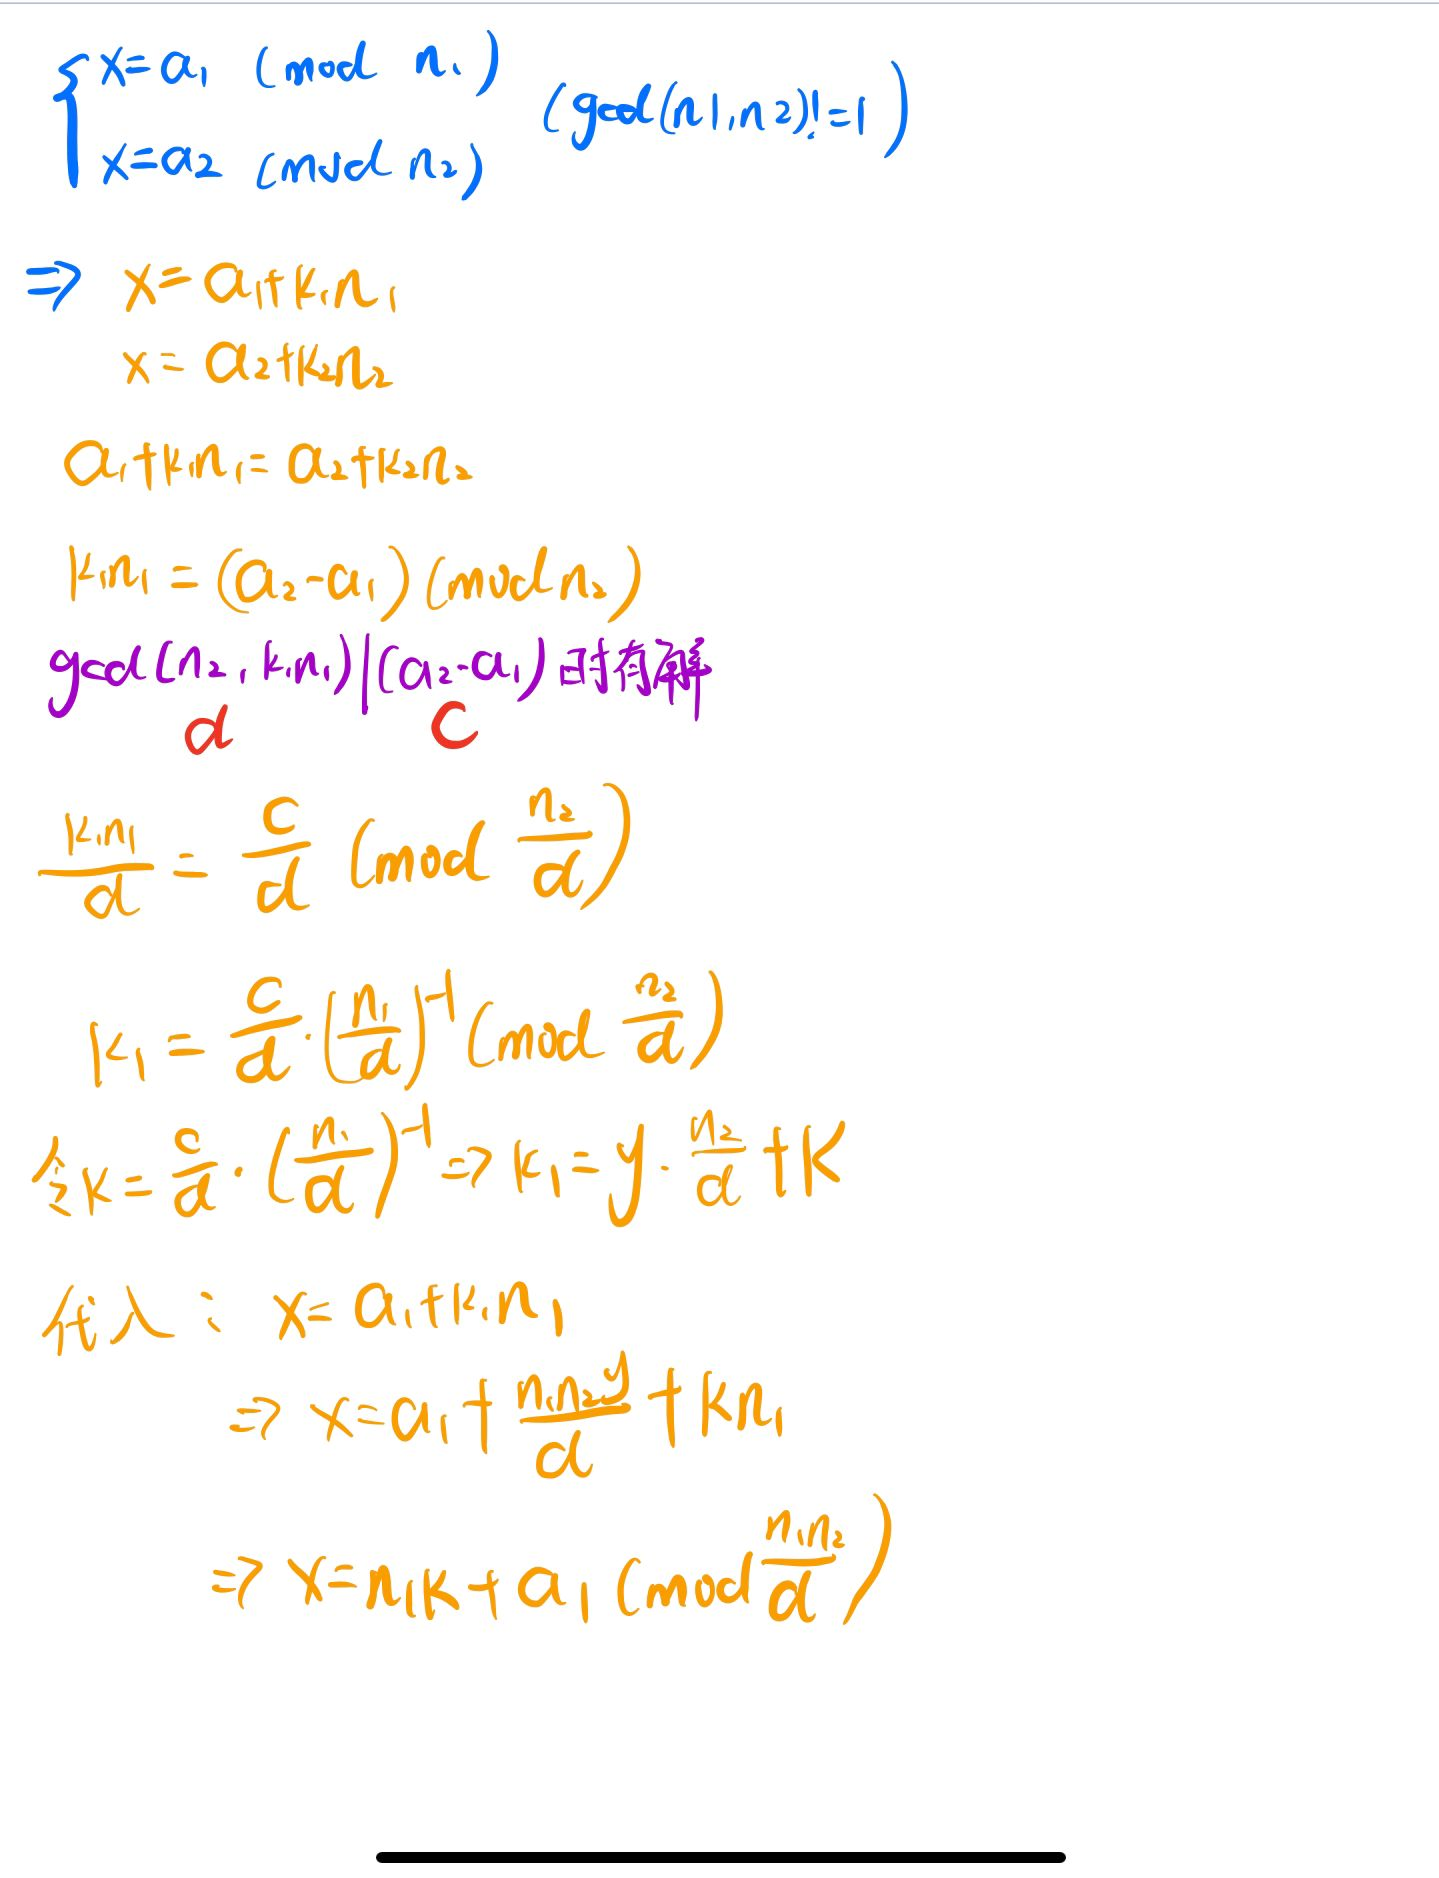 x=a₁ (mod n₁)
(gcd(n1,n2)!=1)
x=a₂ (mod n₂)
⇒ x=a₁+k₁n₁
x=a₂+k₂n₂
a₁+k₁n₁=a₂+k₂n₂
k₁n₁=(a₂-a₁)(mod n₂)
gcd(n₂,k₁n₁)|(a₂-a₁)时有解
d c
k₁n₁/d = c/d (mod n₂/d)
k₁ = c/d·(n₁/d)⁻¹(mod n₂/d)
令k=c/d·(n₁/d)⁻¹⇒k₁=y·n₂/d+k
代入: x=a₁+k₁n₁
⇒ x=a₁+n₁n₂y/d+kn₁
⇒ x=n₁k+a₁(mod n₁n₂/d)